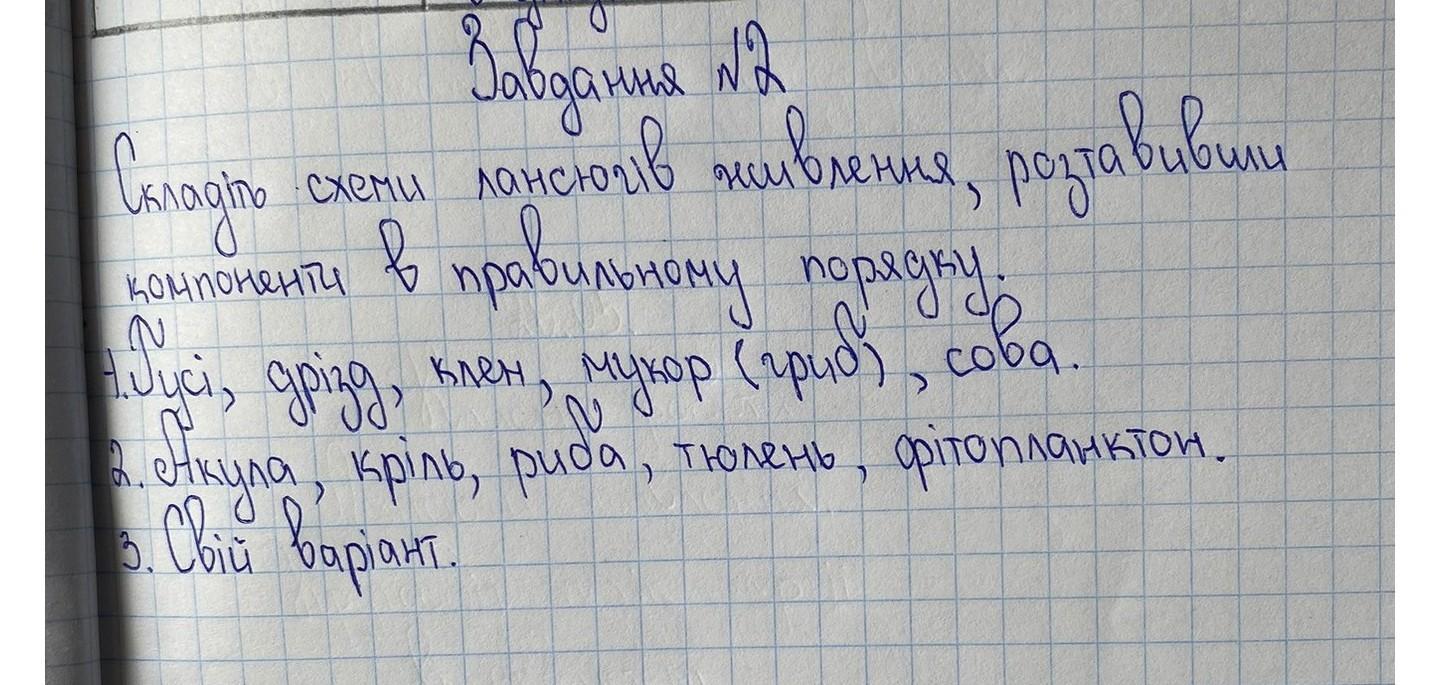 Завдання №2
Складіть схеми лансюгів живлення, розтавивши
компоненти в правильному порядку.
1. Гусі, дрізд, клен, мукор (гриб), сова.
2. Акула, кріль, риба, тюлень, фітопланктон.
3. Свій варіант.